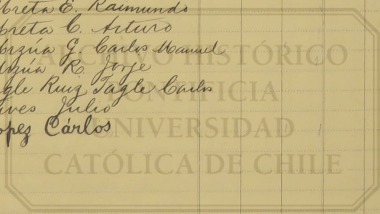 Ureta E. Raimundo
Ureta C. Arturo
Urzúa G. Carlos Manuel
R. Jorge
Ruiz Tagle Carlos
Julio
Cárlos
HISTÓRICO
PONTIFICIA
UNIVERSIDAD
CATÓLICA DE CHILE